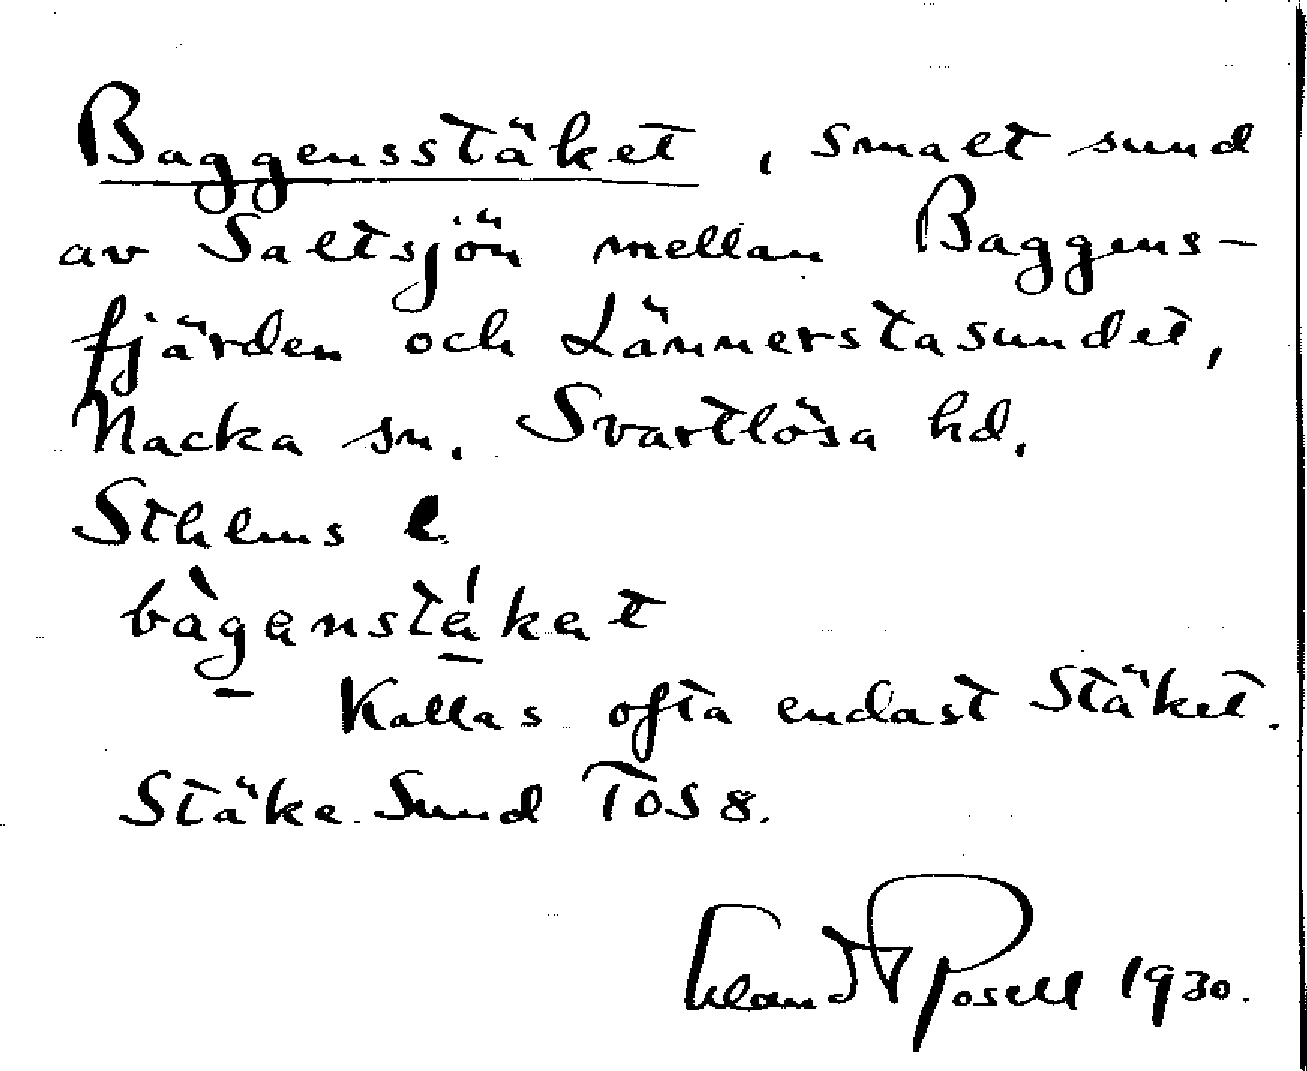 Baggensstäket, smalt sund
av Saltsjön mellan Baggens-
fjärden och Lännerstasundet,
Nacka sn. Svartlösa hd.
Sthlms l.
bàganstä́kat
Kallas ofta endast Stäket.
Stäke Sund TOS 8.
Erland Rosell 1930.